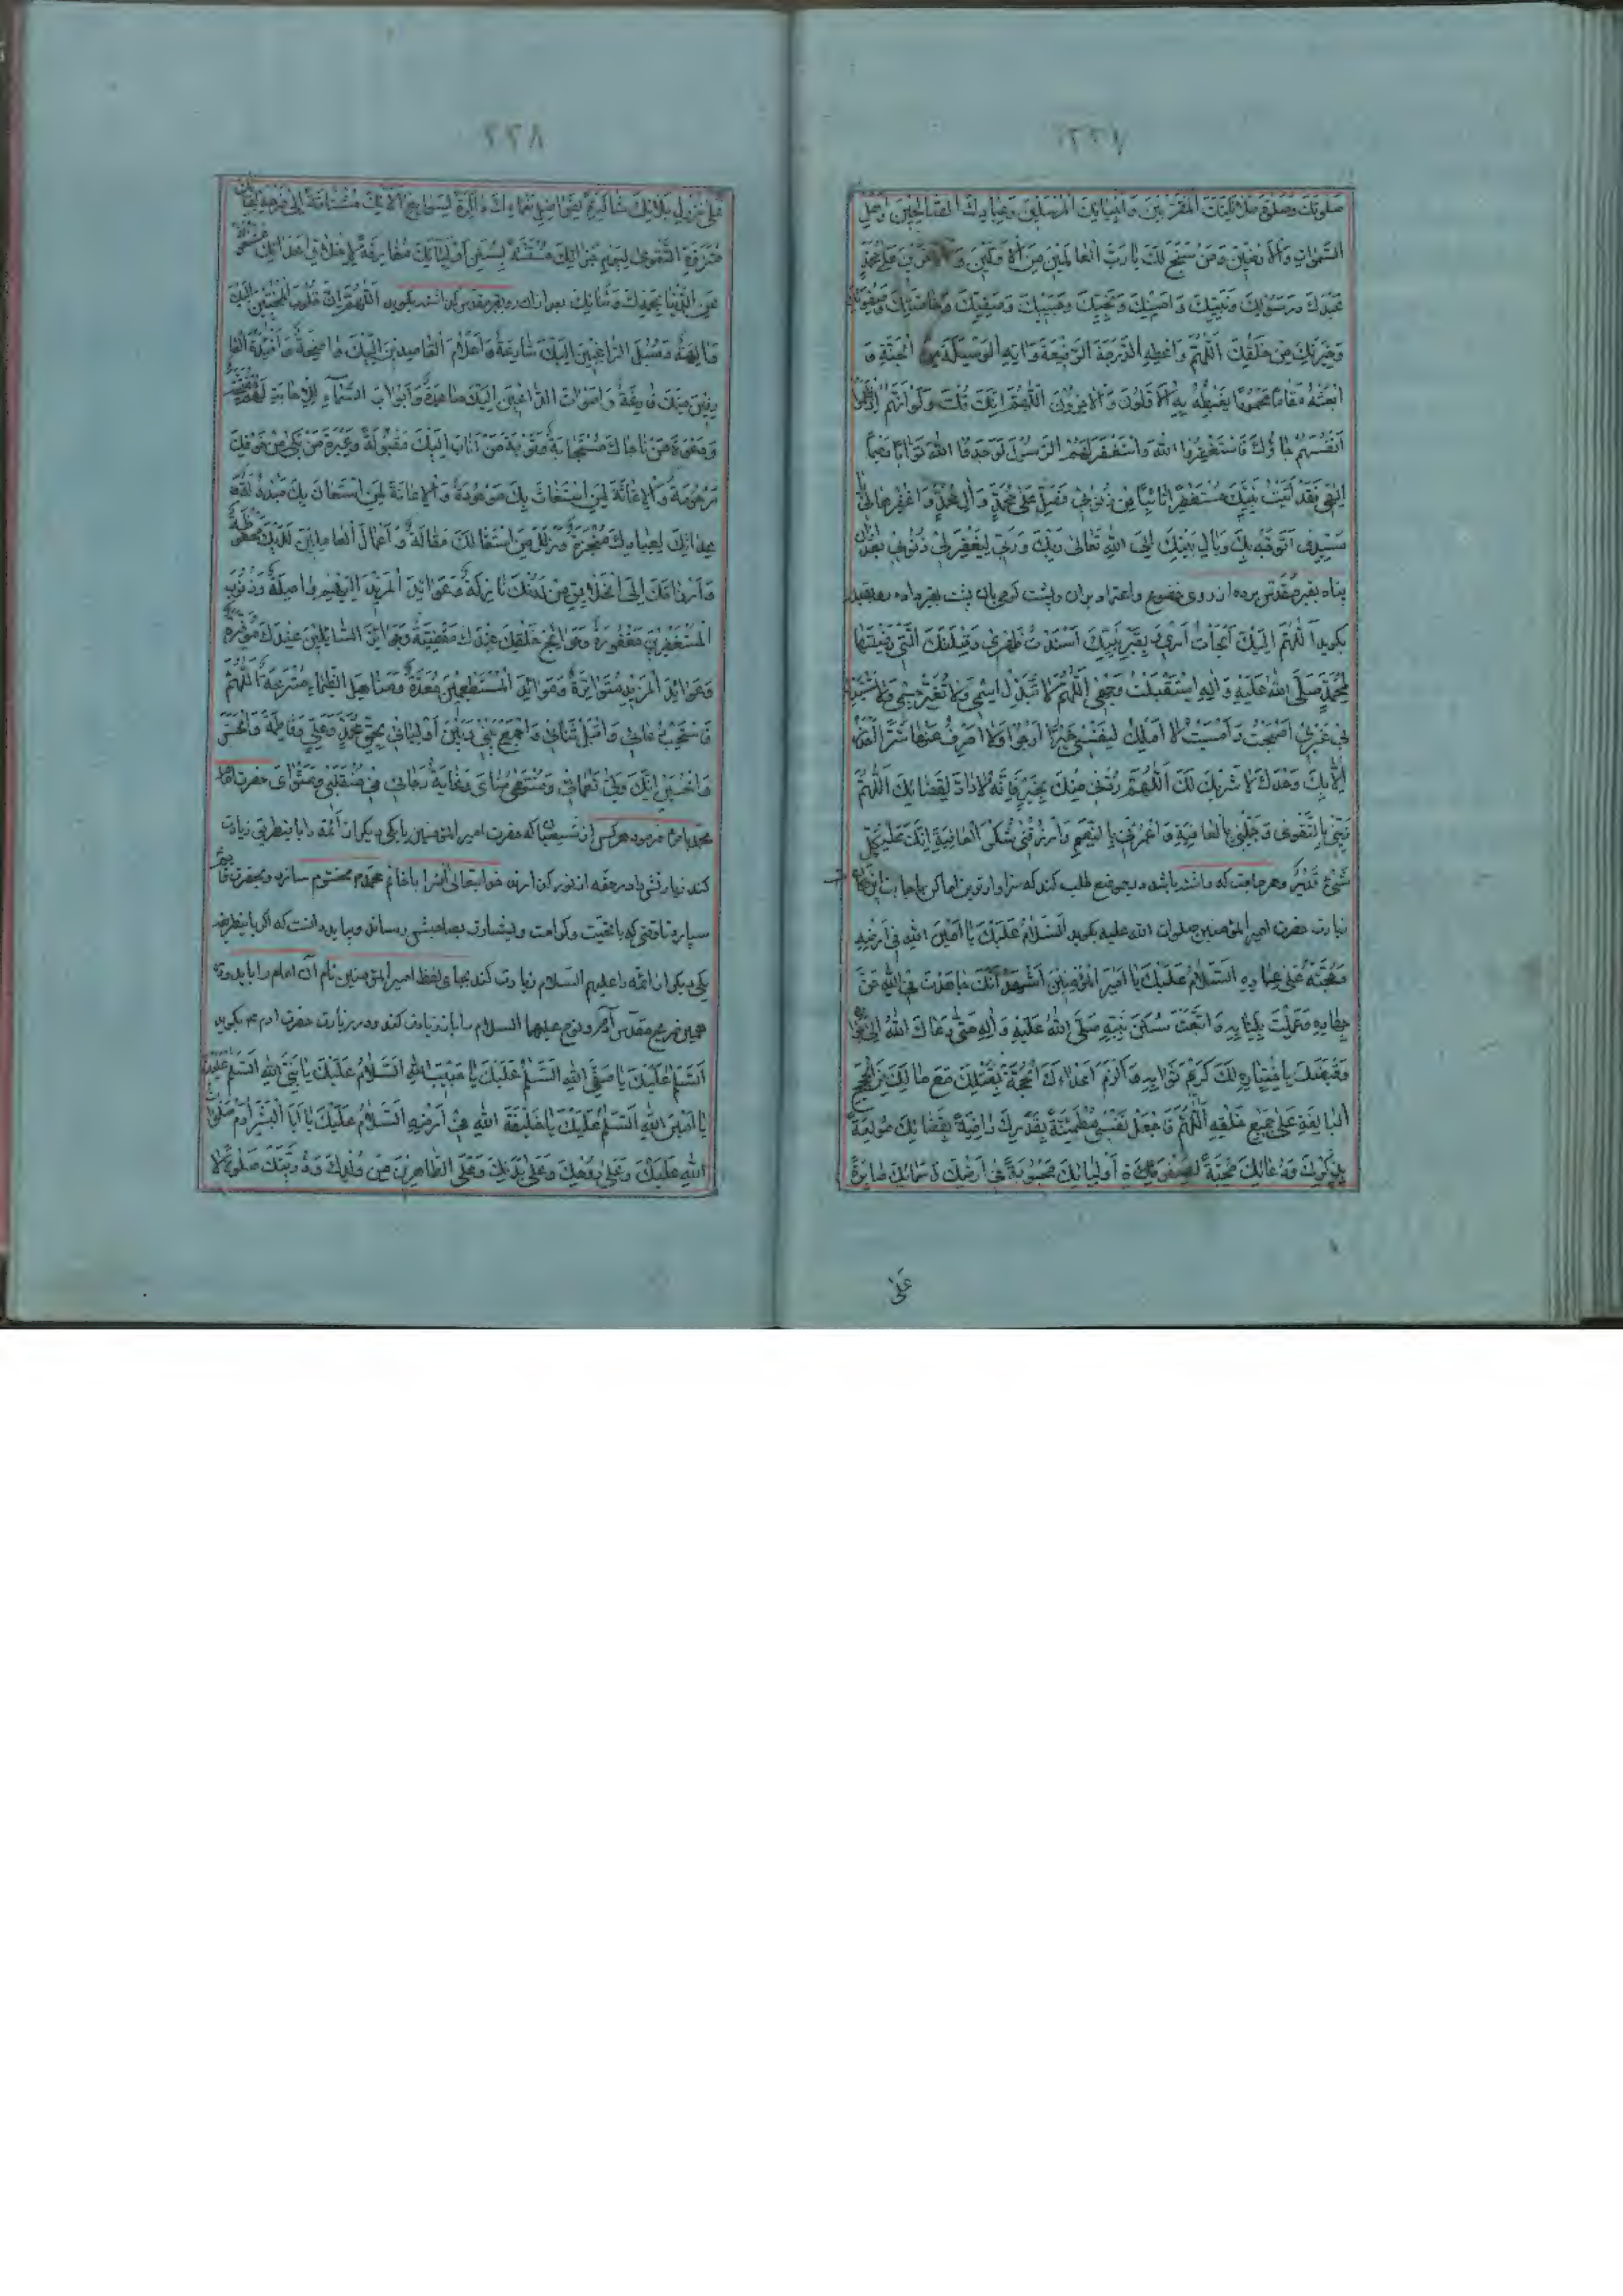 ٢٢٧
صَلَوتِكَ وَصَلوةِ مَلائِكَتِكَ المُقَرَّبينَ وَاَنبِيائِكَ المُرسَلينَ وَعِبادِكَ الصّالِحينَ وَاَهلِ
السَّمواتِ وَالاَرَضينَ وَمَن سَبَّحَ لَكَ يا رَبَّ العالَمينَ مِنَ الاَوَّلينَ وَالآخِرينَ عَلى مُحَمَّدٍ
عَبدِكَ وَرَسُولِكَ وَنَبِيِّكَ وَاَمينِكَ وَنَجِيِّكَ وَحَبيبِكَ وَصَفِيِّكَ وَخاصَّتِكَ وَصَفوَتِكَ
وَخِيَرَتِكَ مِن خَلقِكَ اَللّهُمَّ وَاَعطِهِ الدَّرَجَةَ الرَّفيعَةَ وَآتِهِ الوَسيلَةَ مِنَ الجَنَّةِ وَ
ابعَثهُ مَقاماً مَحمُوداً يَغبِطُهُ بِهِ الاَوَّلُونَ وَالآخِرُونَ اَللّهُمَّ اِنَّكَ قُلتَ وَلَو اَنَّهُم اِذ ظَلَمُوا
اَنفُسَهُم جاؤُكَ فَاستَغفَرُوا اللهَ وَاستَغفَرَ لَهُمُ الرَّسُولُ لَوَجَدُوا اللهَ تَوّاباً رَحيماً
اِلهي فَقَد اَتَيتُ نَبِيَّكَ مُستَغفِراً تائِباً مِن ذُنُوبي فَصَلِّ عَلى مُحَمَّدٍ وَآلِ مُحَمَّدٍ وَاغفِرها لي يا
سَيِّدي اَتَوَجَّهُ بِكَ وَبِاَهلِ بَيتِكَ اِلَى اللهِ تَعالى رَبِّكَ وَرَبّي لِيَغفِرَ لي ذُنُوبي بعد ازان
پناه بقبر مقدس برده از روی خضوع و اعتماد بران و پشت
بگوید اَللّهُمَّ اِلَيكَ اَلجَأتُ اَمري وَبِقَبرِ نَبِيِّكَ اَسنَدتُ ظَهري وَقِبلَتَكَ الَّتي رَضيتَها
لِمُحَمَّدٍ صَلَّى اللهُ عَلَيهِ وَآلِهِ استَقبَلتُ بِوَجهي اَللّهُمَّ لا تُبَدِّل اِسمي وَلا تُغَيِّر جِسمي وَلا تَستَبدِل
بي غَيري اَصبَحتُ وَاَمسَيتُ لا اَملِكُ لِنَفسي خَيرَ ما اَرجُوا وَلا اَصرِفُ عَنها شَرَّ ما اَحذَرُ
اِلّا بِكَ وَحدَكَ لا شَريكَ لَكَ اَللّهُمَّ رُدَّني مِنكَ بِخَيرٍ فَاِنَّهُ لا رادَّ لِقَضائِكَ اَللّهُمَّ
زَيِّنّي بِالتَّقوى وَجَمِّلني بِالعافِيَةِ وَاغمُرني بِالنِّعَمِ وَارزُقني شُكرَ العافِيَةِ اِنَّكَ عَلى كُلِّ
شَيءٍ قَديرٌ و هر حاجت که داشته باشد طلب کند که سزاوارترین اماکن باجابت
زیارت حضرت امیرالمؤمنین صلوات الله علیه بگوید اَلسَّلامُ عَلَيكَ يا اَمينَ اللهِ في اَرضِهِ
وَحُجَّتَهُ عَلى عِبادِهِ اَلسَّلامُ عَلَيكَ يا اَميرَ المُؤمِنينَ اَشهَدُ اَنَّكَ جاهَدتَ فِي اللهِ حَقَّ
جِهادِهِ وَعَمِلتَ بِكِتابِهِ وَاتَّبَعتَ سُنَنَ نَبِيِّهِ صَلَّى اللهُ عَلَيهِ وَآلِهِ حَتّى دَعاكَ اللهُ اِلى جِوارِهِ
وَقَبَضَكَ بِاِختِيارِهِ لَكَ كَريمَ ثَوابِهِ وَاَلزَمَ اَعداءَكَ الحُجَّةَ بِقَتلِكَ مَعَ ما لَكَ مِنَ الحُجَجِ
البالِغَةِ عَلى جَميعِ خَلقِهِ اَللّهُمَّ فَاجعَل نَفسي مُطمَئِنَّةً بِقَدَرِكَ راضِيَةً بِقَضائِكَ مُولَعَةً
بِذِكرِكَ وَدُعائِكَ مُحِبَّةً لِصَفوَةِ اَولِيائِكَ مَحبُوبَةً في اَرضِكَ وَسَمائِكَ صابِرَةً
عَلى
٢٢٨
عَلى نُزُولِ بَلائِكَ شاكِرَةً لِفَواضِلِ نَعمائِكَ ذاكِرَةً لِسَوابِغِ آلائِكَ مُشتاقَةً اِلى فَرحَةِ لِقائِكَ
مُتَزَوِّدَةً التَّقوى لِيَومِ جَزائِكَ مُستَنَّةً بِسُنَنِ اَولِيائِكَ مُفارِقَةً لِاَخلاقِ اَعدائِكَ مَشغُولَةً
عَنِ الدُّنيا بِحَمدِكَ وَثَنائِكَ بعد ازان بگوید اَللّهُمَّ اِنَّ قُلُوبَ المُخبِتينَ اِلَيكَ
وَالِهَةٌ وَسُبُلَ الرّاغِبينَ اِلَيكَ شارِعَةٌ وَاَعلامَ القاصِدينَ اِلَيكَ واضِحَةٌ وَاَفئِدَةَ العا
رِفينَ مِنكَ فازِعَةٌ وَاَصواتَ الدّاعينَ اِلَيكَ صاعِدَةٌ وَاَبوابَ السَّماءِ لِلاِجابَةِ لَهُم مُفَتَّحَةٌ
وَدَعوَةَ مَن ناجاكَ مُستَجابَةٌ وَتَوبَةَ مَن اَنابَ اِلَيكَ مَقبُولَةٌ وَعَبرَةَ مَن بَكى مِن خَوفِكَ
مَرحُومَةٌ وَالاِغاثَةَ لِمَنِ استَغاثَ بِكَ مَوجُودَةٌ وَالاِعانَةَ لِمَنِ استَعانَ بِكَ مَبذُولَةٌ
عِداتِكَ لِعِبادِكَ مُنجَزَةٌ وَزَلَلَ مَنِ استَقالَكَ مُقالَةٌ وَاَعمالَ العامِلينَ لَدَيكَ مَحفُوظَةٌ
وَاَرزاقَكَ اِلَى الخَلائِقِ مِن لَدُنكَ نازِلَةٌ وَعَوائِدَ المَزيدِ اِلَيهِم واصِلَةٌ وَذُنُوبَ
المُستَغفِرينَ مَغفُورَةٌ وَحَوائِجَ خَلقِكَ عِندَكَ مَقضِيَّةٌ وَجَوائِزَ السّائِلينَ عِندَكَ مُوَفَّرَةٌ
وَعَوائِدَ المَزيدِ مُتَواتِرَةٌ وَمَوائِدَ المُستَطعِمينَ مُعَدَّةٌ وَمَناهِلَ الظِّماءِ مُترَعَةٌ اَللّهُمَّ
فَاستَجِب دُعائي وَاقبَل ثَنائي وَاجمَع بَيني وَبَينَ اَولِيائي بِحَقِّ مُحَمَّدٍ وَعَلِيٍّ وَفاطِمَةَ وَالحَسَنِ
وَالحُسَينِ اِنَّكَ وَلِيُّ نَعمائي وَمُنتَهى مُنايَ وَغايَةُ رَجائي في مُنقَلَبي وَمَثوايَ حضرت امام
محمد باقر فرمود هر کس از شیعیان ما که حضرت امیرالمؤمنین یا یکی دیگر از ائمه را باینطریق زیارت
کند زیارتش را در حقه از نور کرده خدایتعالی آنرا بخاتم محمد مختوم سازد و بحضرت قائم
سپارد تا وقتی که با تحیت و کرامت و بشارت بصاحبش رساند و باید دانست که اگر باینطریق
یکی دیگر از ائمه را علیهم السلام زیارت کند بجای لفظ امیرالمؤمنین نام آن امام را باید و در
همین ضریح مقدس آدم و نوح علیهما السلام را باید زیارت کند و در زیارت حضرت آدم بگوید
اَلسَّلامُ عَلَيكَ يا صَفِيَّ اللهِ اَلسَّلامُ عَلَيكَ يا حَبيبَ اللهِ اَلسَّلامُ عَلَيكَ يا نَبِيَّ اللهِ اَلسَّلامُ عَلَيكَ
يا اَمينَ اللهِ اَلسَّلامُ عَلَيكَ يا خَليفَةَ اللهِ في اَرضِهِ اَلسَّلامُ عَلَيكَ يا اَبَا البَشَرِ آدَمَ صَلَواتُ
اللهِ عَلَيكَ وَعَلى رُوحِكَ وَعَلى بَدَنِكَ وَعَلَى الطّاهِرينَ مِن وُلدِكَ وَذُرِّيَّتِكَ صَلوةً لا